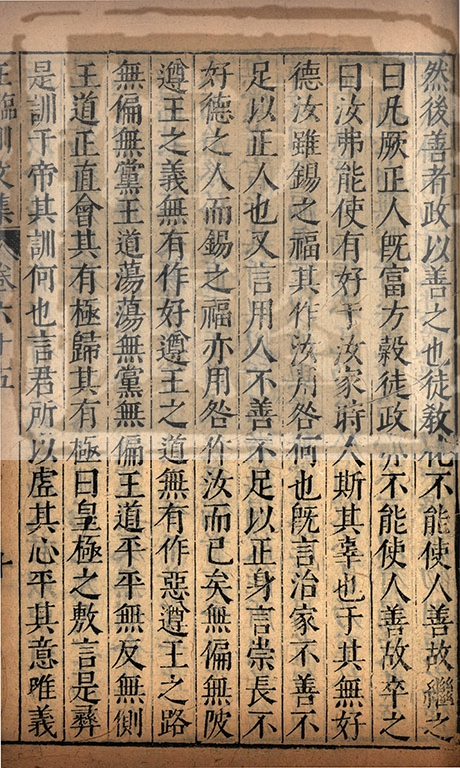 然後善者政以善之也徒敎化不能使人善故繼之
曰凡厥正人旣富方糓徒政亦不能使人善故卒之
曰汝弗能使有好于汝家時人斯其辜也于其無好
德汝雖錫之福其作汝用咎何也旣言治家不善不
足以正人也又言用人不善不足以正身言崇長不
好德之人而錫之福亦用咎作汝而已矣無偏無陂
遵王之義無有作好遵王之道無有作惡遵王之路
無偏無黨王道蕩蕩無黨無偏王道平平無反無側
王道正直會其有極歸其有極曰皇極之敷言是彝
是訓于帝其訓何也言君所以虛其心平其意唯義
王臨川文集 卷六十五 十